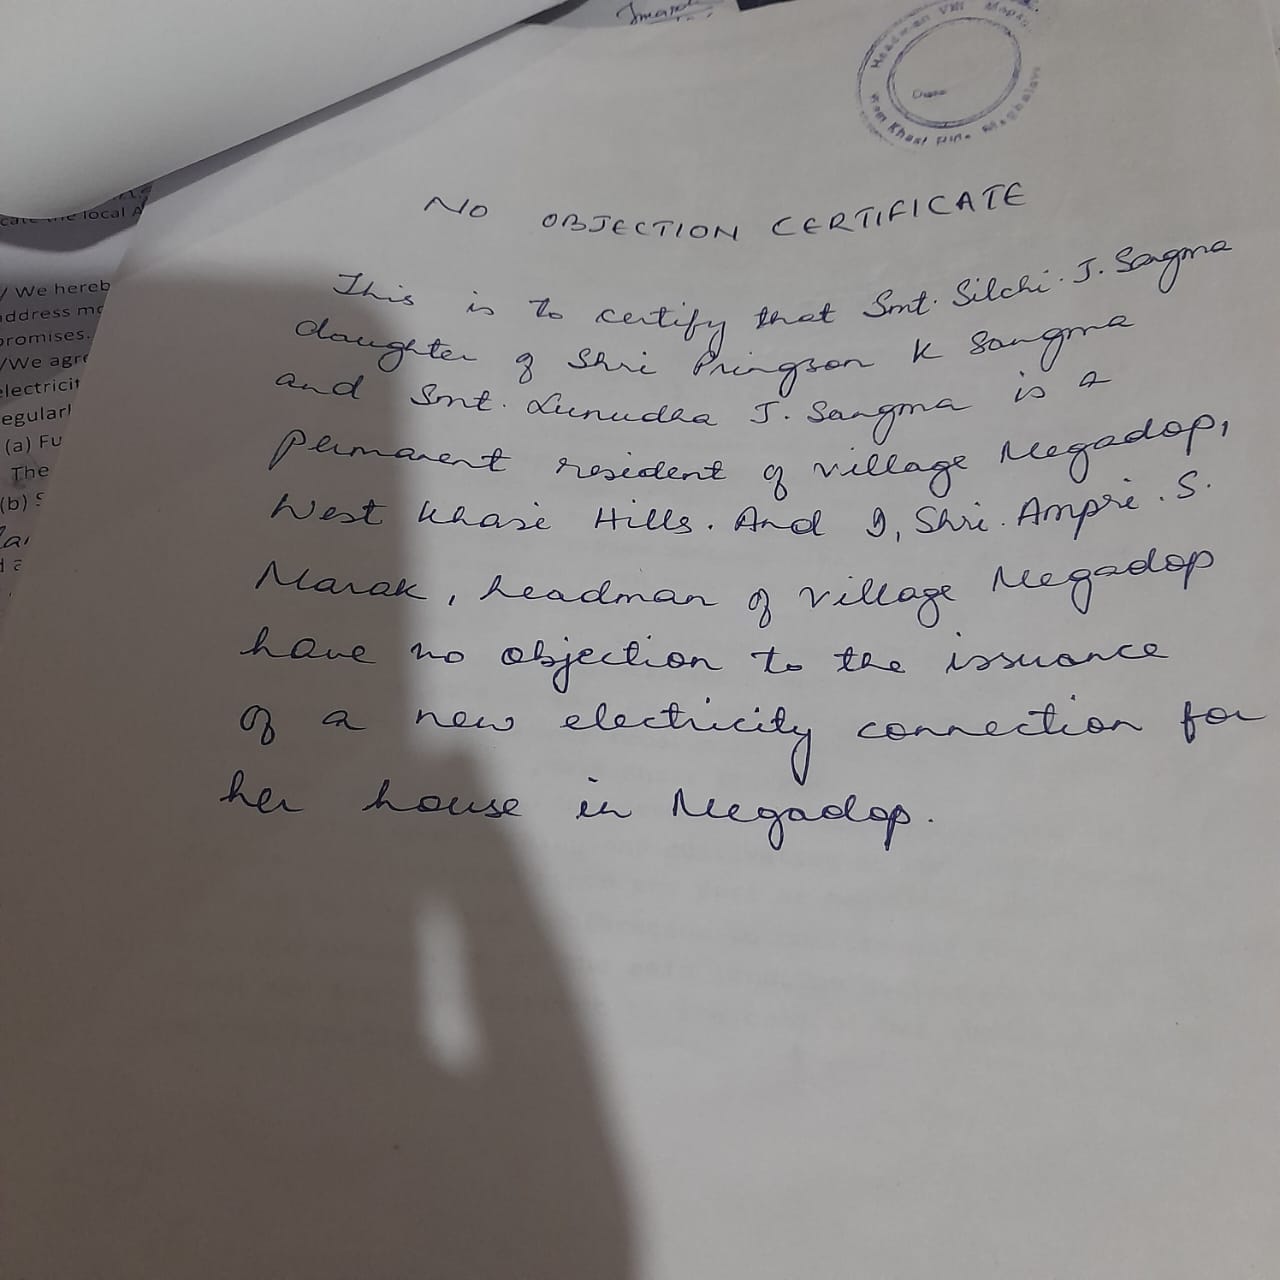 Headman Vill
West Khasi Hills Meghalaya
Date
NO OBJECTION CERTIFICATE
This is to certify that Smt. Silchi. J. Sagma
daughter of Shri Pringson K Sangma
and Smt. Lunudha J. Sangma is a
permanent resident of village Megadop,
West Khasi Hills. And I, Shri. Ampri. S.
Marak, headman of village Megadop
have no objection to the issuance
of a new electricity connection for
her house in Megadop.
local A
/ We hereb
address mo
promises.
/We agre
electricit
egularl
(a) Fu
The
(b) S